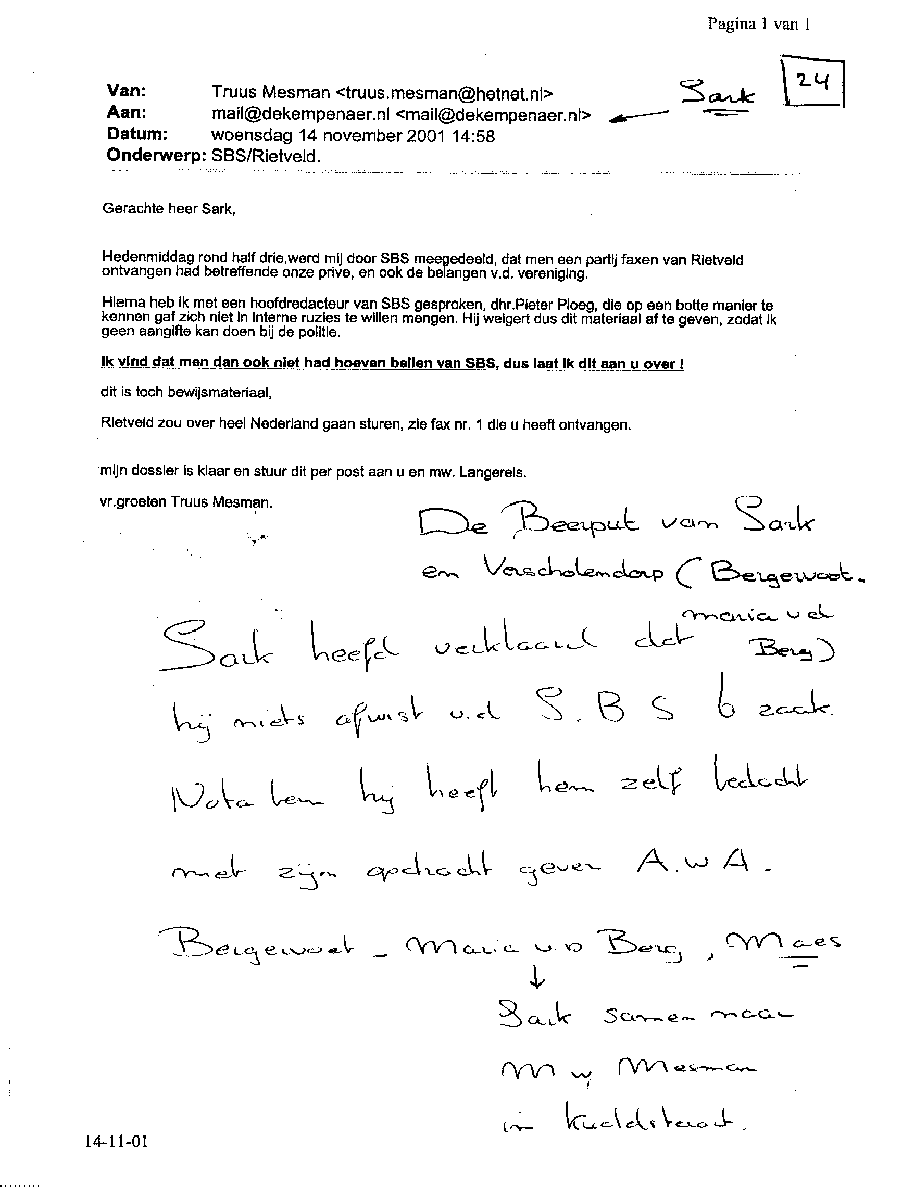 Pagina 1 van 1
Sark
24
Van: Truus Mesman <truus.mesman@hetnet.nl>
Aan: mail@dekempenaer.nl <mail@dekempenaer.nl>
Datum: woensdag 14 november 2001 14:58
Onderwerp: SBS/Rietveld.
Gerachte heer Sark,
Hedenmiddag rond half drie,werd mij door SBS meegedeeld, dat men een partij faxen van Rietveld
ontvangen had betreffende onze prive, en ook de belangen v.d. vereniging.
Hierna heb ik met een hoofdredacteur van SBS gesproken, dhr.Pieter Ploeg, die op een botte manier te
kennen gaf zich niet in interne ruzies te willen mengen. Hij weigert dus dit materiaal af te geven, zodat ik
geen aangifte kan doen bij de politie.
Ik vind dat men dan ook niet had hoeven bellen van SBS, dus laat ik dit aan u over !
dit is toch bewijsmateriaal,
Rietveld zou over heel Nederland gaan sturen, zie fax nr. 1 die u heeft ontvangen.
mijn dossier is klaar en stuur dit per post aan u en mw. Langereis.
vr.groeten Truus Mesman.
De Beerput van Sark
en Verscholendorp (Bergewoet.
maria v d
Berg)
Sark heefd verklaard dat
hij niets afwist v.d S.B S 6 zaak
Nota ben hij heeft hem zelf bedacht
met zijn opdracht gever A.w A.
Bergewoet - Maria v.D Berg, Maes
Sark samen naar
M vj Mesman
in
14-11-01